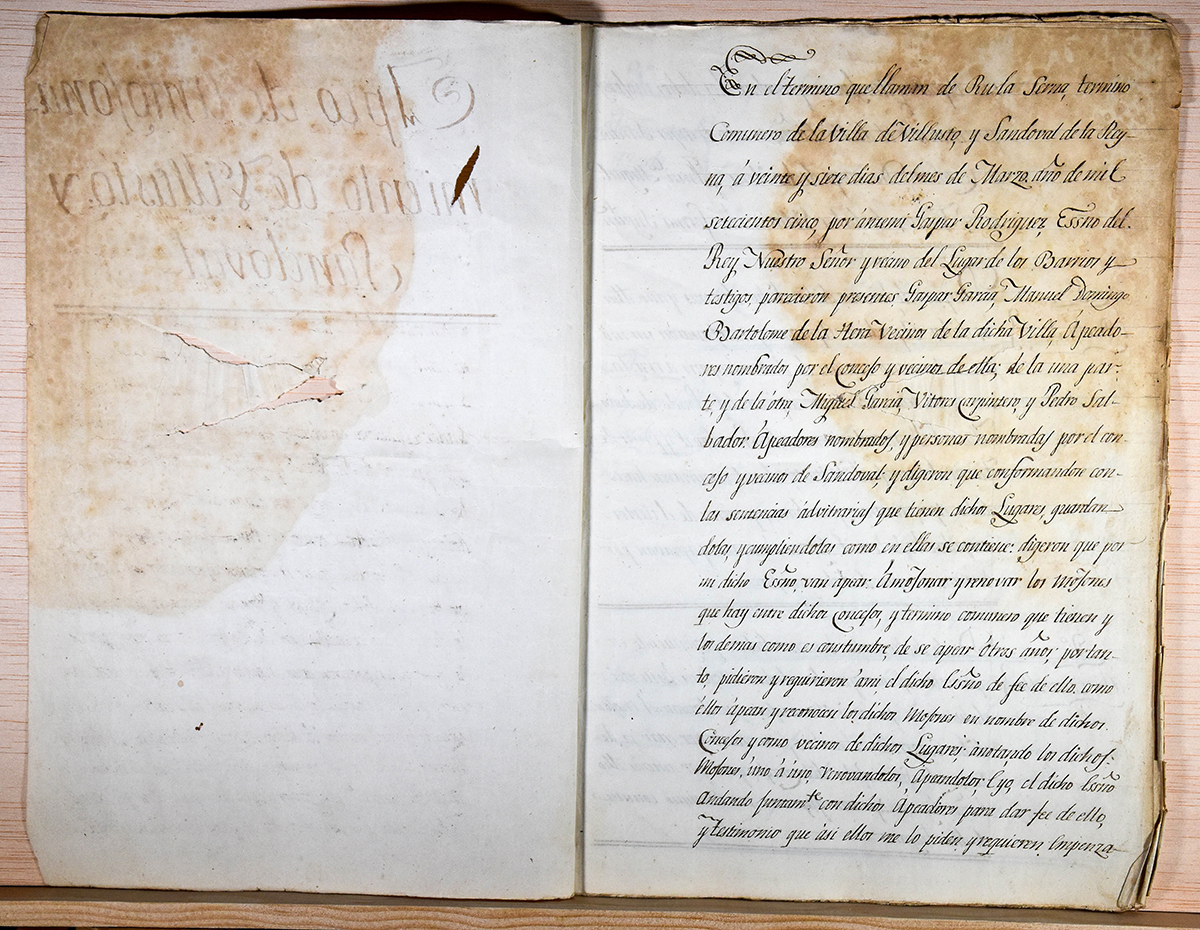 En el termino que llaman de Rula Serna, termino
Comunero de la Villa de Villusto, y Sandoval de la Rey-
na, á veinte y siete dias del mes de Marzo, año de mil
setecientos cinco, por ántemi Gaspar Rodriguez, Essño del
Rey Nuestro Señor y vecino del Lugar de los Barrios y
testigos, parecieron presentes, Gaspar Garcia, Manuel Domingo
Bartolome de la Hera Vecinos de la dicha Villa, Ápeado-
res nombrados por el Concejo y vecinos de ella; de la una par-
te y de la ótra, Miguel Garcia, Vitores Carpintero, y Pedro Sal-
bador. Ápeadores nombrados, y personas nombradas por el con-
cejo y vecinos de Sandoval y digeron que conformandose con-
las sentencias ádvitrarias que tienen dichos Lugares guardan
dolas, y cumpliendolas como en ellas se contiene: digeron que por
mi dicho Essño, van ápear. Ámojonar y renovar los Mojones
que hay entre dichos Concejos, y termino comunero que tienen y
los demas como es constumbre, de se ápear ótros años, por tan-
to, pidieron y requirieron ámi, el dicho Essño de fee de ello, como
éllos ápean y reconocen los dichos Mojones en nombre de dichos
Concejos y como vecinos de dichos Lugares, ánotando los dichos
Mojones, úno á úno, renovandolos, Ápeandolos, E yo, el dicho Essño
Andando juntamte. con dichos Ápeadores para dar fee de ello,
y testimonio que ási ellos me lo piden, y requieren, Empenza-
Apeo de amojona
miento de Villusto, y
Sandoval